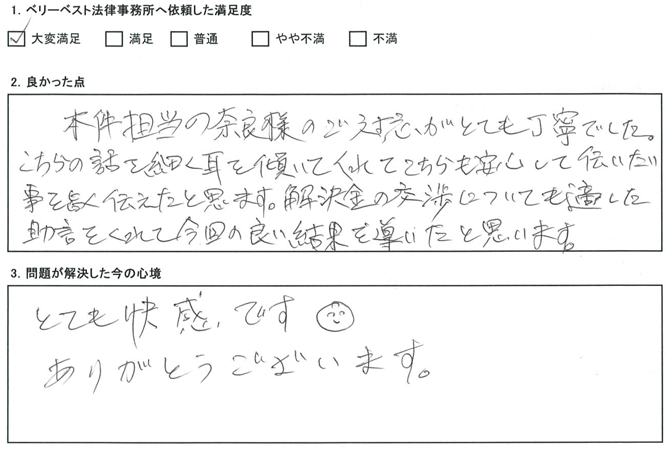 1. ベリーベスト法律事務所へ依頼した満足度
大変満足 満足 普通 やや不満 不満
2. 良かった点
本件担当の奈良様の がとても丁寧でした。
こちらの話を細く耳を傾いてくれてこちらも安心して伝いたい
事を 伝えたと思います。解決金の交渉についても適した
助言をくれて今回の良い結果を導いたと思います。
3. 問題が解決した今の心境
とても快感、です
ありがとうございます。